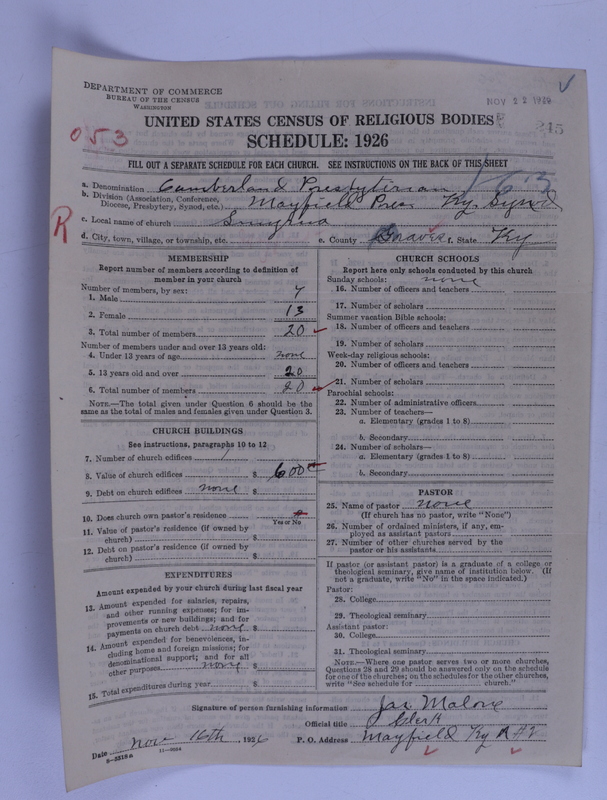 DEPARTMENT OF COMMERCE
BUREAU OF THE CENSUS
WASHINGTON
NOV 22 1929
053
UNITED STATES CENSUS OF RELIGIOUS BODIES
245
SCHEDULE: 1926
FILL OUT A SEPARATE SCHEDULE FOR EACH CHURCH. SEE INSTRUCTIONS ON THE BACK OF THIS SHEET
a. Denomination Cumberland Presbyterian
b. Division (Association, Conference, Diocese, Presbytery, Synod, etc.) Mayfield Pres. Ky. Synod
R
c. Local name of church Smyrna
d. City, town, village, or township, etc. e. County Graves f. State Ky
MEMBERSHIP
Report number of members according to definition of
member in your church
Number of members, by sex:
1. Male 7
2. Female 13
3. Total number of members 20
Number of members under and over 13 years old:
4. Under 13 years of age none
5. 13 years old and over 20
6. Total number of members 20
NOTE.—The total given under Question 6 should be the
same as the total of males and females given under Question 3.
CHURCH BUILDINGS
See instructions, paragraphs 10 to 12
7. Number of church edifices 1
8. Value of church edifices $ 600
9. Debt on church edifices none $
10. Does church own pastor's residence
Yes or No
11. Value of pastor's residence (if owned by
church) $
12. Debt on pastor's residence (if owned by
church) $
EXPENDITURES
Amount expended by your church during last fiscal year
13. Amount expended for salaries, repairs,
and other running expenses; for im-
provements or new buildings; and for
payments on church debt none $
14. Amount expended for benevolences, in-
cluding home and foreign missions; for
denominational support; and for all
other purposes none $
15. Total expenditures during year $
CHURCH SCHOOLS
Report here only schools conducted by this church
Sunday schools: none
16. Number of officers and teachers
17. Number of scholars
Summer vacation Bible schools:
18. Number of officers and teachers
19. Number of scholars
Week-day religious schools:
20. Number of officers and teachers
21. Number of scholars
Parochial schools:
22. Number of administrative officers
23. Number of teachers—
a. Elementary (grades 1 to 8)
b. Secondary
24. Number of scholars—
a. Elementary (grades 1 to 8)
b. Secondary
PASTOR
25. Name of pastor none
(If church has no pastor, write "None")
26. Number of ordained ministers, if any, em-
ployed as assistant pastors
27. Number of other churches served by the
pastor or his assistants
If pastor (or assistant pastor) is a graduate of a college or
theological seminary, give name of institution below. (If
not a graduate, write "No" in the space indicated.)
Pastor:
28. College
29. Theological seminary
Assistant pastor:
30. College
31. Theological seminary
NOTE.—Where one pastor serves two or more churches,
Questions 28 and 29 should be answered only on the schedule
for one of the churches; on the schedules for the other churches,
write "See schedule for church."
Signature of person furnishing information Jas Malone
Official title Clerk
Date Nov 16th, 1926 P. O. Address Mayfield Ky
8-3318a 11-9084